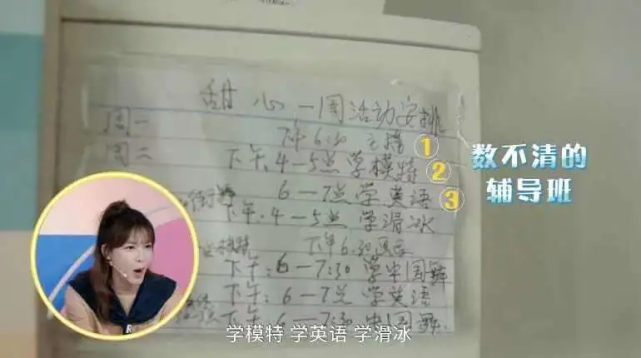 甜心一周活动安排
周一 下午6:30 主持 ①
周二 下午:4-5点学模特 ②
6-7点学英语 ③
下午:4-5点 学滑冰
下午6:30
下午:6-7:30 学中国舞
下午:6-7点 学英语
下午:6-7:30 中国舞
数不清的
辅导班
学模特 学英语 学滑冰